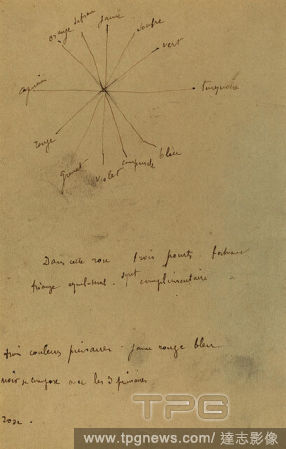 orange safran jaune soufre
vert
capucine turquoise
rouge bleu
grenat violet campanule
Dans cette roue trois points formant
triangle equilateral sont complimentaire
trois couleurs primaires - jaune rouge bleu
noir se compose avec les 3 primaires
rose -
TPG
www.tpgnews.com / 達志影像